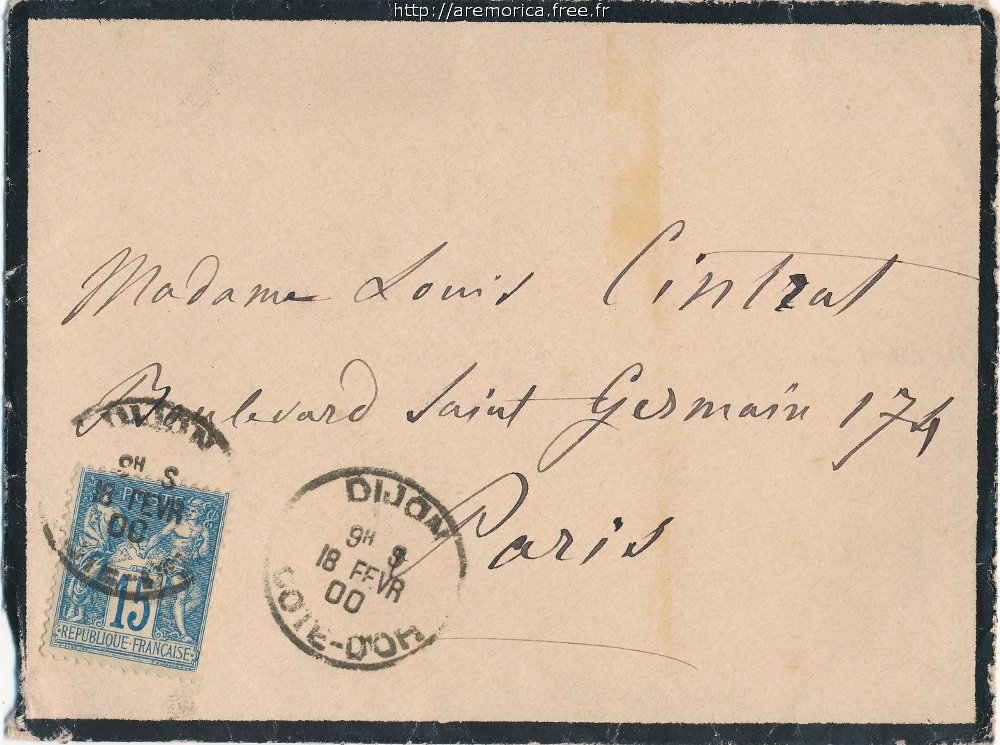 http://aremorica.free.fr
Madame Louis Cintrat
Boulevard Saint Germain 174
Paris
DIJON
9H S
18 FEVR
00
15
REPUBLIQUE FRANÇAISE
DIJON
9H S
18 FEVR
00
COTE-D'OR